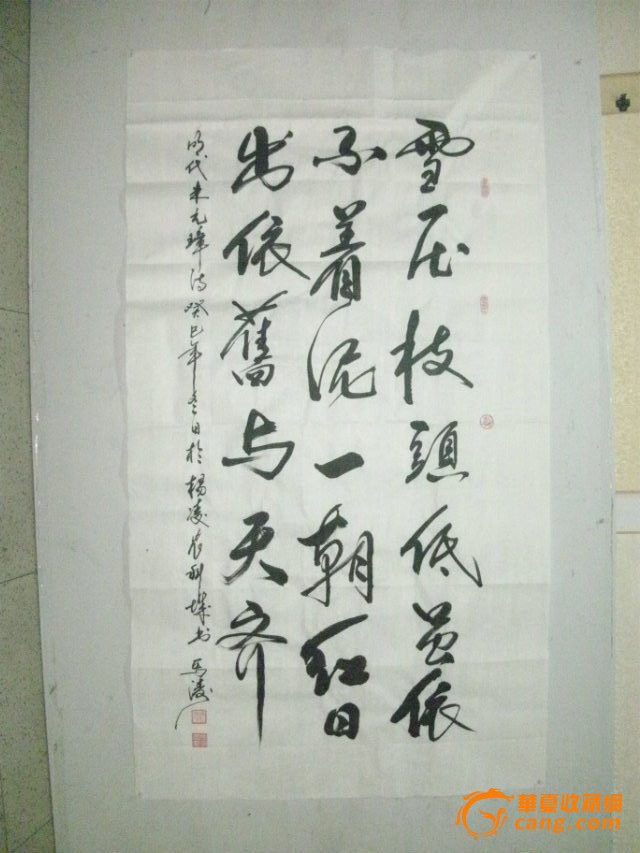 雪压枝頭低虽依
不着泥一朝红日
出依舊与天齐
明代朱元璋诗癸巳年冬日於楊凌农科城书
華夏收藏網
cang.com